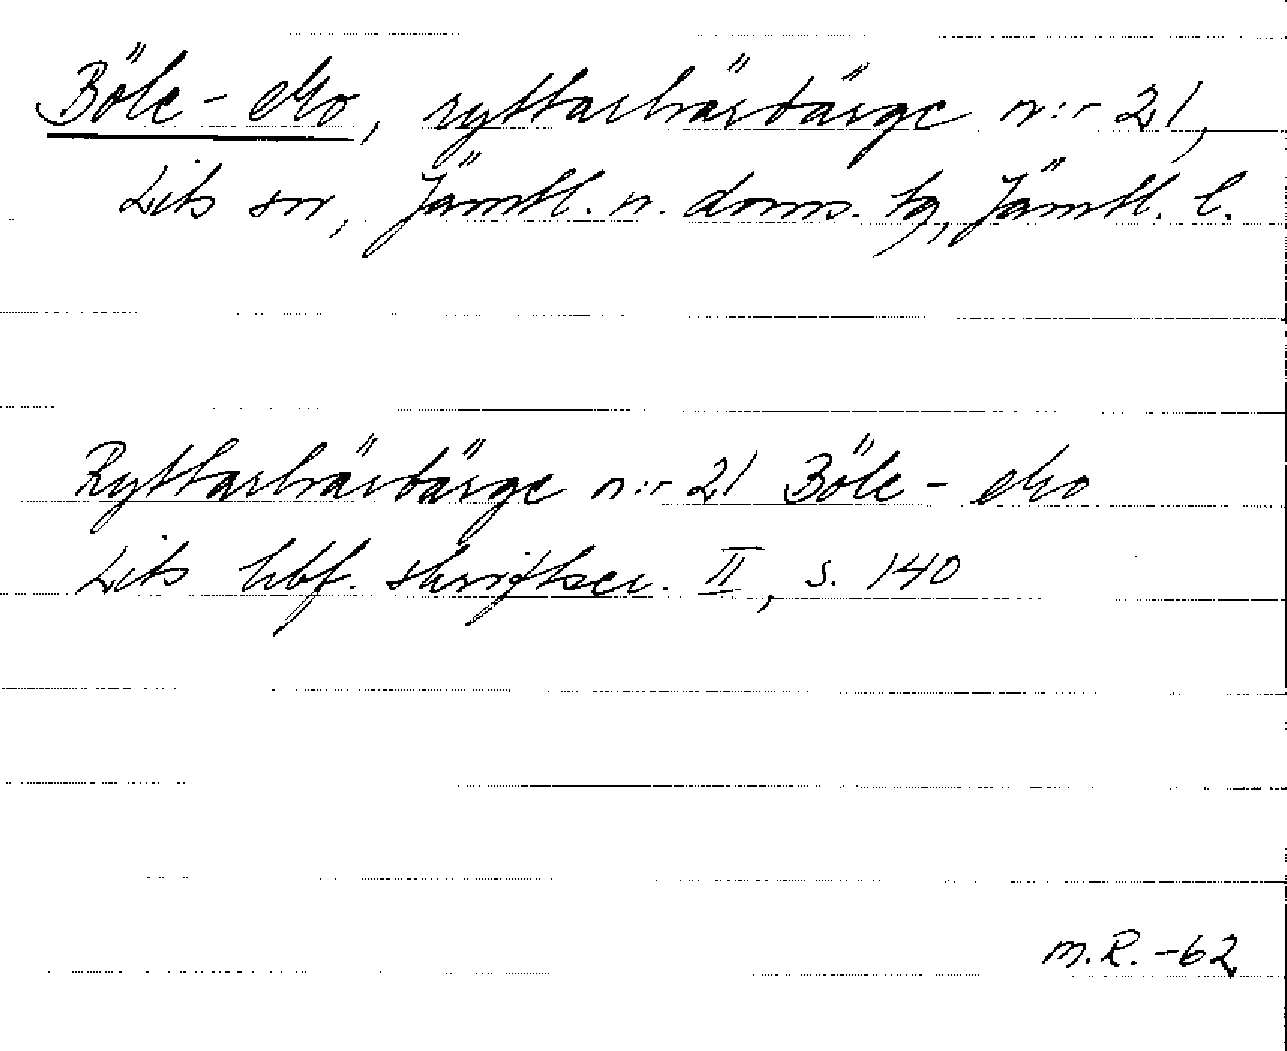 Böle-eko, ryttarhärbärge n:r 21,
Lits sn, Jämtl. n. doms. tg, Jämtl. l.
Ryttarhärbärge n:r 21 Böle-eko
Lits hbf. skriftser. II, s. 140
M.R. -62